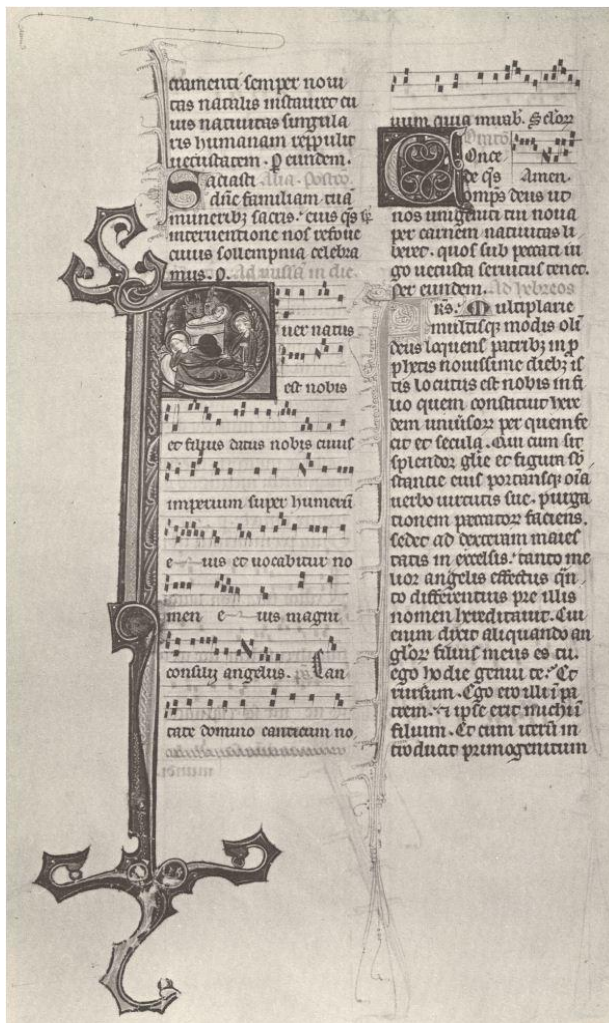 cramenti semper noui
tas natalis instauret cu
ius natiuitas singula
ris humanam reppulit
uetustatem. P eundem.
Saciasti Alia. Postco
dn̄e familiam tuā
muneribꝫ sacris. eius q̄s sp̄
interuentione nos refoue
cuius sollempnia celebra
mus. P. Ad missā in die
Puer natus
est nobis
et filius datus nobis cuius
imperium super humerū
e ius et uocabitur no
men e ius magni
consilij angelus. ps̄ Can
tate domino canticum no
uum quia mirab. Sclor
Once
de q̄s Amen.
omp̄s deus ut
nos unigeniti tui noua
per carnem natiuitas li
beret. quos sub peccati iu
go uetusta seruitus tenet.
Per eundem. Ad hebreos
Frs. Multipharie
multisq modis oli
deus loquens patribꝫ in p
phetis nouissime diebꝫ is
tis locutus est nobis in fi
lio quem constituit here
dem uniuisor per quem fe
cit et secula. Qui cum sit
splendor glie et figura sb
stantie eius portansq oīa
uerbo uirtutis sue. purga
tionem peccator faciens.
sedet ad dexteram maies
tatis in excelsis. tanto me
lior angelis effectus q̄n
to differentius pre illis
nomen hereditauit. Cui
enim dixit aliquando an
glor filius meus es tu.
ego hodie genui te. Et
rursum. Ego ero illi ī pa
trem. ⁊ ipse erit michi ī
filium. Et cum iterū in
troducit primogenitum